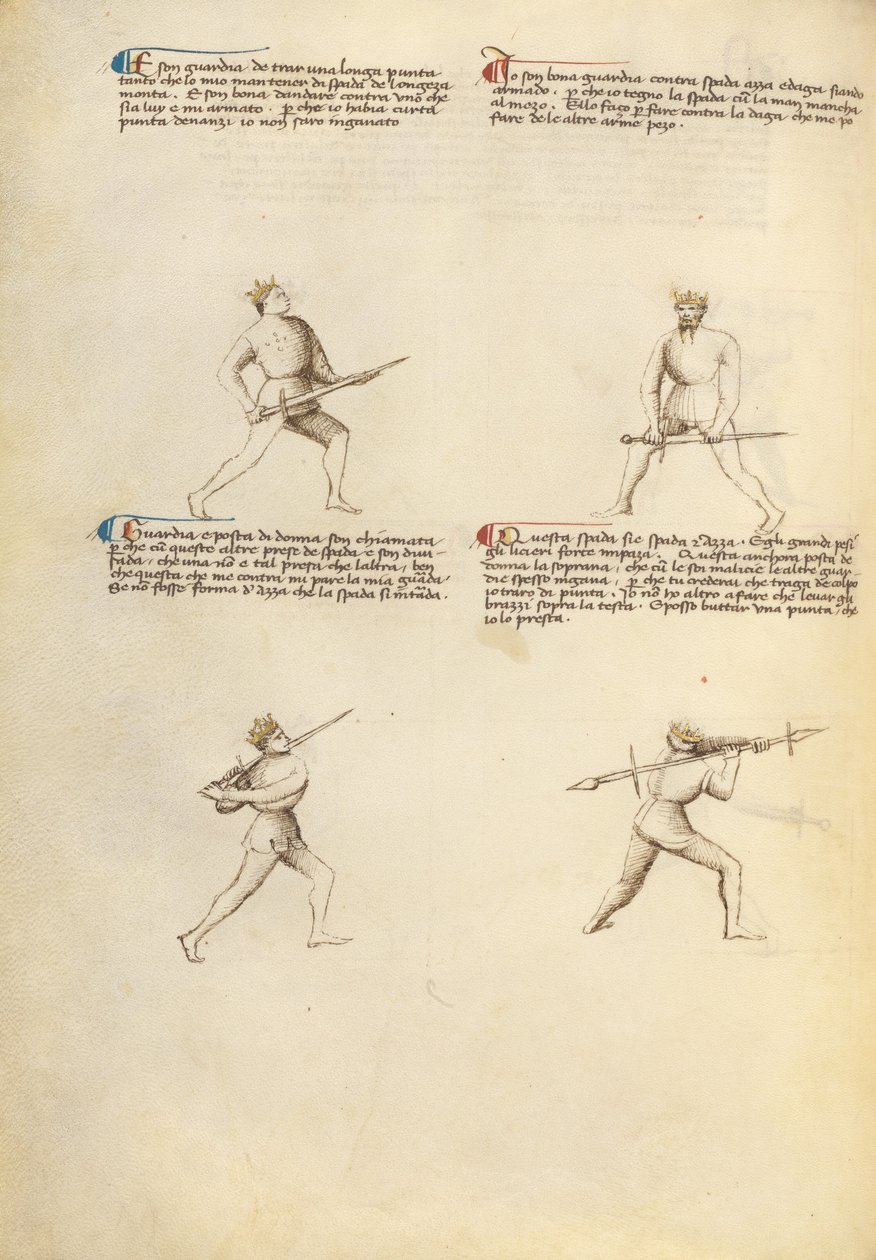 E son guardia de trar una longa punta
tanto che lo mio mantener di spada de longeza
monta. E son bona dandare contra uno che
sia luy e mi armato. p̱ che io habia curta
punta denanzi io non saro inganato
Io son bona guardia contra spada azza e daga siando
armado. p̱ che io tegno la spada cū la man mancha
al mezo. Ello faço p̱ fare contra la daga che me po
fare de le altre arme pezo.
Guardia e posta di donna son chiamata
p̱ che cū queste altre prese de spada e son diui-
sada, che una nō e tal presa che laltra, ben
che questa che me contra mi pare la mia guada.
Se nō fosse forma d'Azza che la spada si intāda.
Questa spada sie spada & Azza. E gli grandi pesi
gli licieri forte impaza. Questa anchora posta de
donna la soprana, che cū le soi malicie le altre guar-
die spesso ingana, p̱ che tu crederai che traga de colpo
io traro di punta. Io nō ho altro a fare che leuar gli
brazzi sopra la testa. E posso buttar una punta, che
io lo presta.